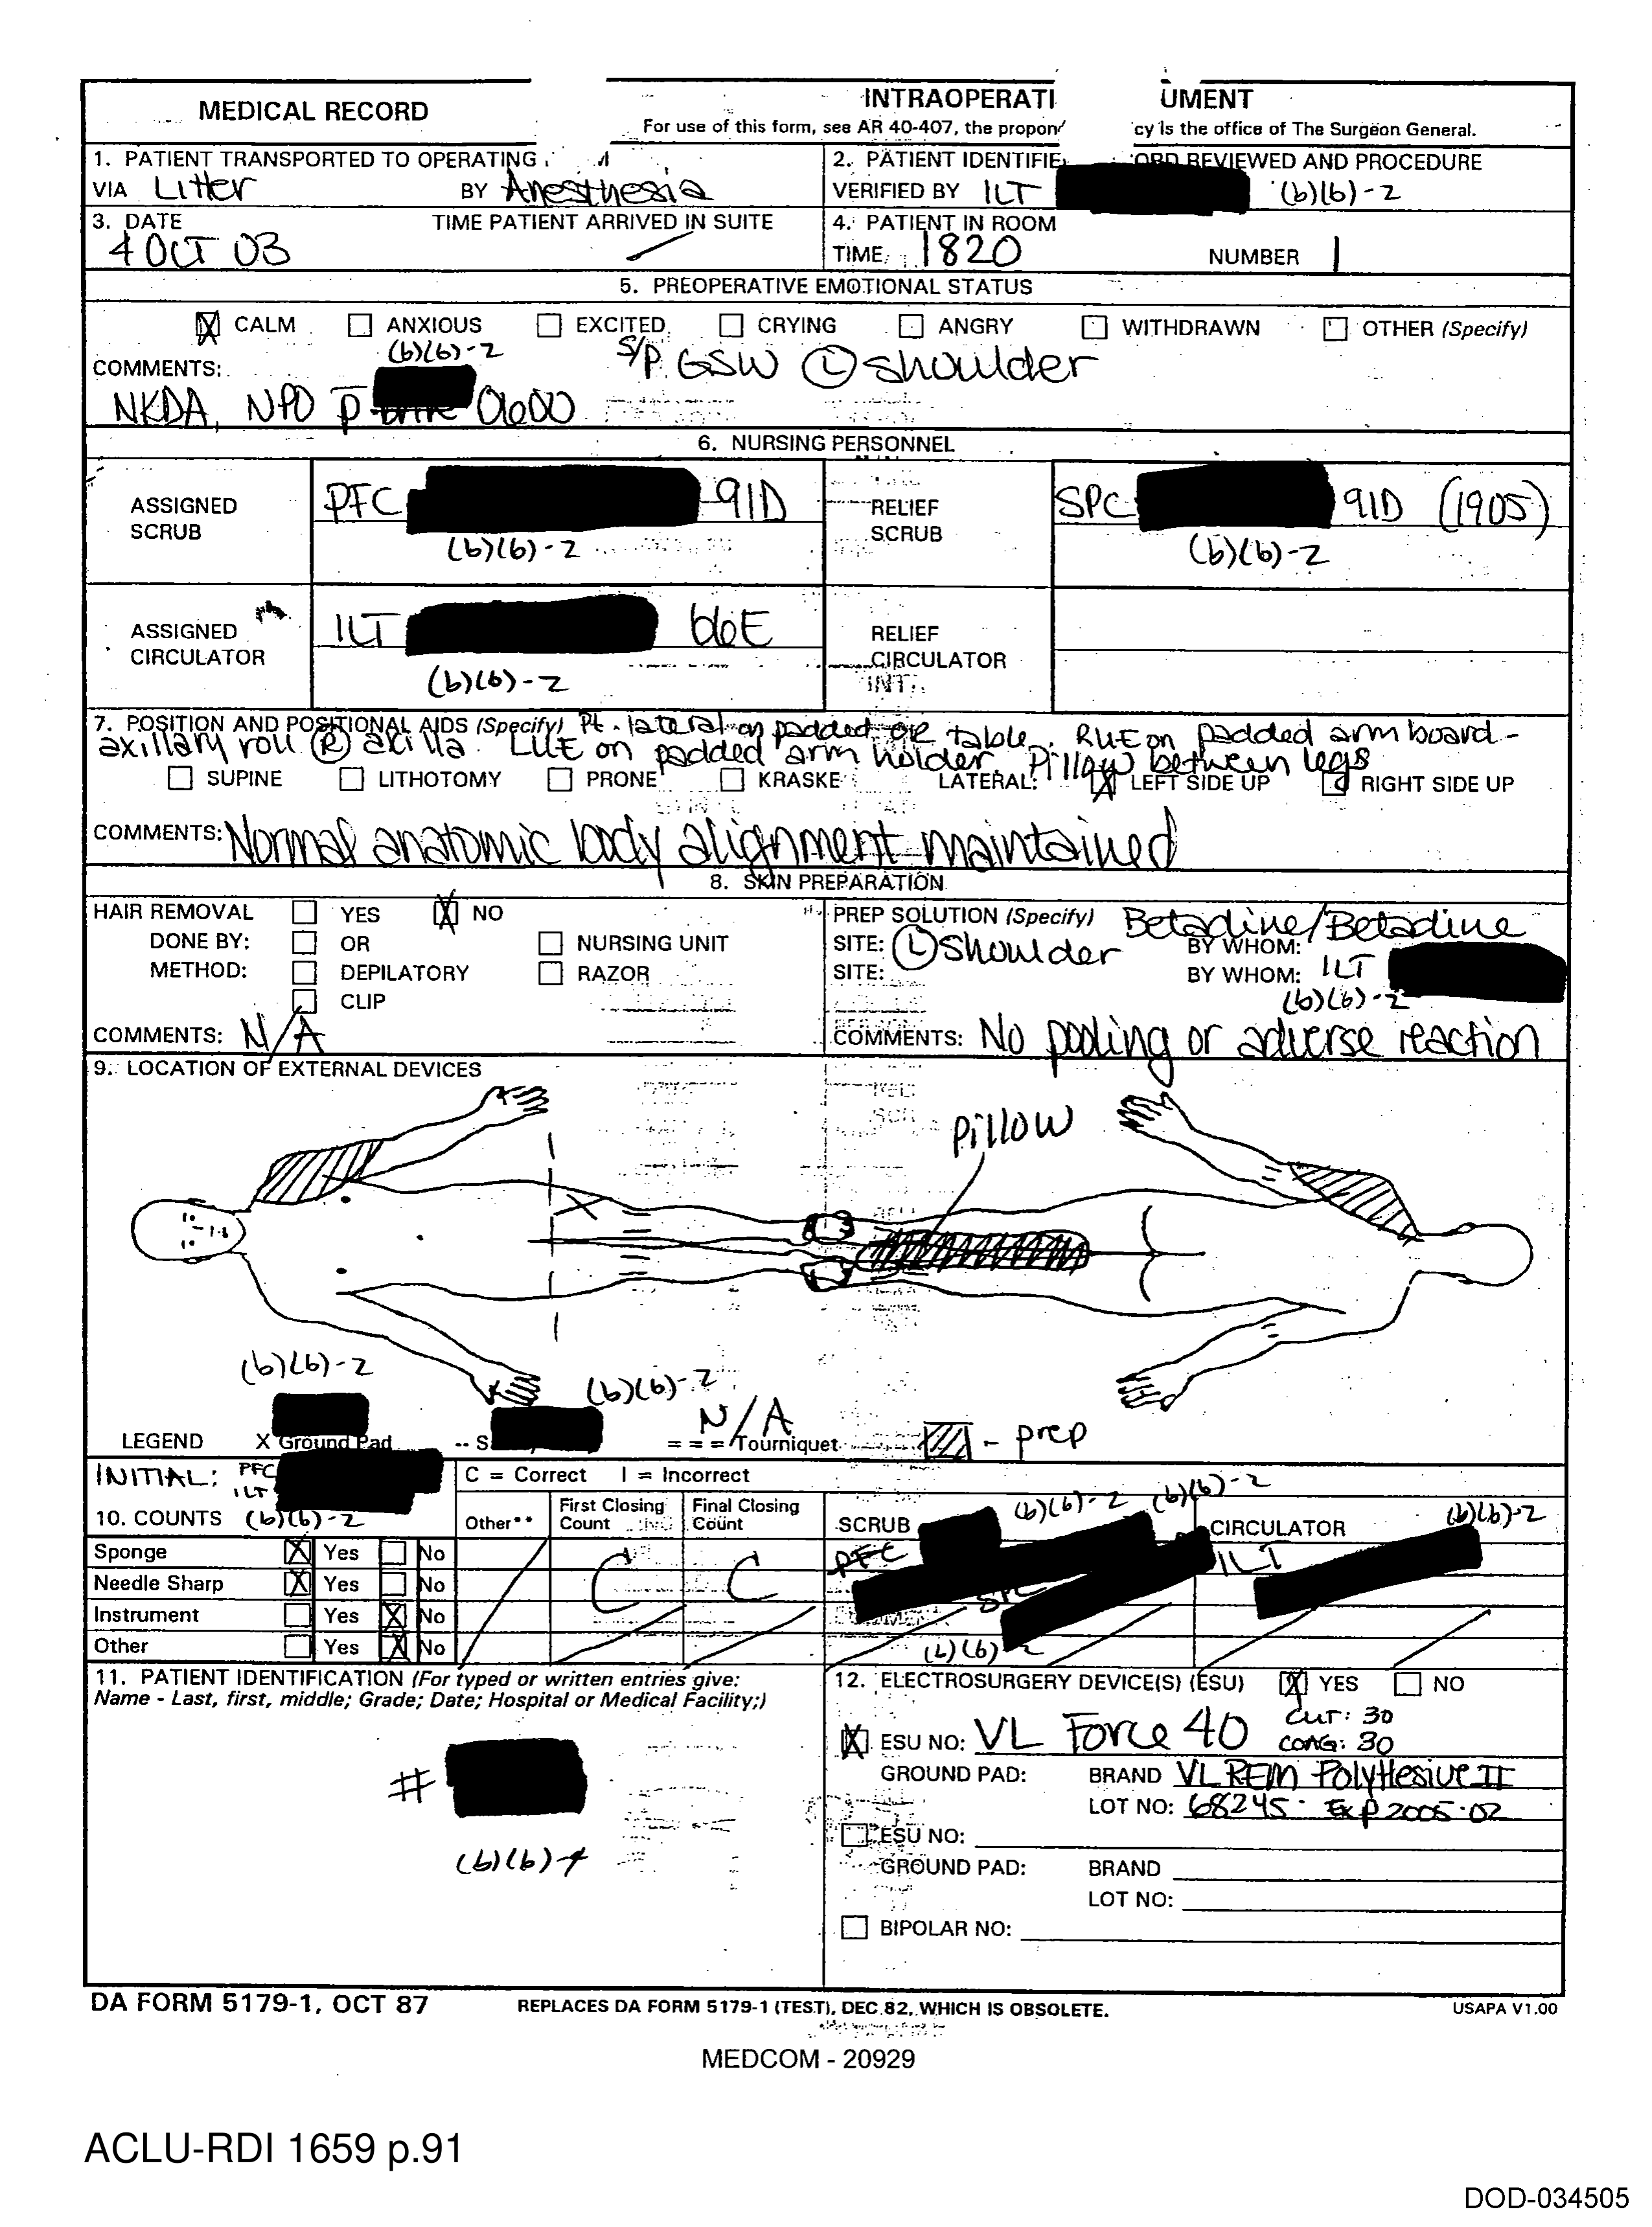 MEDICAL RECORD
INTRAOPERATI UMENT
For use of this form, see AR 40-407, the propon cy is the office of The Surgeon General.
1. PATIENT TRANSPORTED TO OPERATING
VIA Litter BY Anesthesia
2. PATIENT IDENTIFIE ORD REVIEWED AND PROCEDURE
VERIFIED BY 1LT (b)(6)-2
3. DATE TIME PATIENT ARRIVED IN SUITE
4 OCT 03
4. PATIENT IN ROOM
TIME 1820 NUMBER 1
5. PREOPERATIVE EMOTIONAL STATUS
X CALM ANXIOUS EXCITED CRYING ANGRY WITHDRAWN OTHER (Specify)
(b)(6)-2 S/P GSW (L) shoulder
COMMENTS:
NKDA, NPO p 0600
6. NURSING PERSONNEL
ASSIGNED SCRUB PFC 91D RELIEF SCRUB SPC 91D (1905)
(b)(6)-2 (b)(6)-2
ASSIGNED CIRCULATOR 1LT 66E RELIEF CIRCULATOR
(b)(6)-2
INT.
7. POSITION AND POSITIONAL AIDS (Specify) Pt. lateral on padded OR table. RUE on padded arm board -
axillary roll (R) axilla. LUE on padded arm holder. Pillow between legs
SUPINE LITHOTOMY PRONE KRASKE LATERAL: X LEFT SIDE UP RIGHT SIDE UP
COMMENTS: Normal anatomic body alignment maintained
8. SKIN PREPARATION
HAIR REMOVAL YES X NO
DONE BY: OR NURSING UNIT
METHOD: DEPILATORY RAZOR
CLIP
COMMENTS: N/A
PREP SOLUTION (Specify) Betadine/Betadine
SITE: (L) shoulder BY WHOM:
SITE: BY WHOM: 1LT
(b)(6)-2
COMMENTS: No pooling or adverse reaction
9. LOCATION OF EXTERNAL DEVICES
pillow
(b)(6)-2 (b)(6)-2
LEGEND X Ground Pad -- S = = = Tourniquet N/A - prep
INITIAL: PFC
1LT
C = Correct I = Incorrect
10. COUNTS (b)(6)-2
Other** First Closing Count Final Closing Count SCRUB (b)(6)-2 (b)(6)-2 CIRCULATOR (b)(6)-2
Sponge X Yes No C C PFC 1LT
Needle Sharp X Yes No SPC
Instrument Yes X No
Other Yes X No
(b)(6)-2
11. PATIENT IDENTIFICATION (For typed or written entries give:
Name - Last, first, middle; Grade; Date; Hospital or Medical Facility;)
#
(b)(6)-4
12. ELECTROSURGERY DEVICE(S) (ESU) X YES NO
X ESU NO: VL Force 40 CUT: 30
COAG: 30
GROUND PAD: BRAND VL REM PolyHesive II
LOT NO: 68245 Exp 2005-02
ESU NO:
GROUND PAD: BRAND
LOT NO:
BIPOLAR NO:
DA FORM 5179-1, OCT 87 REPLACES DA FORM 5179-1 (TEST), DEC 82, WHICH IS OBSOLETE. USAPA V1.00
MEDCOM - 20929
ACLU-RDI 1659 p.91
DOD-034505